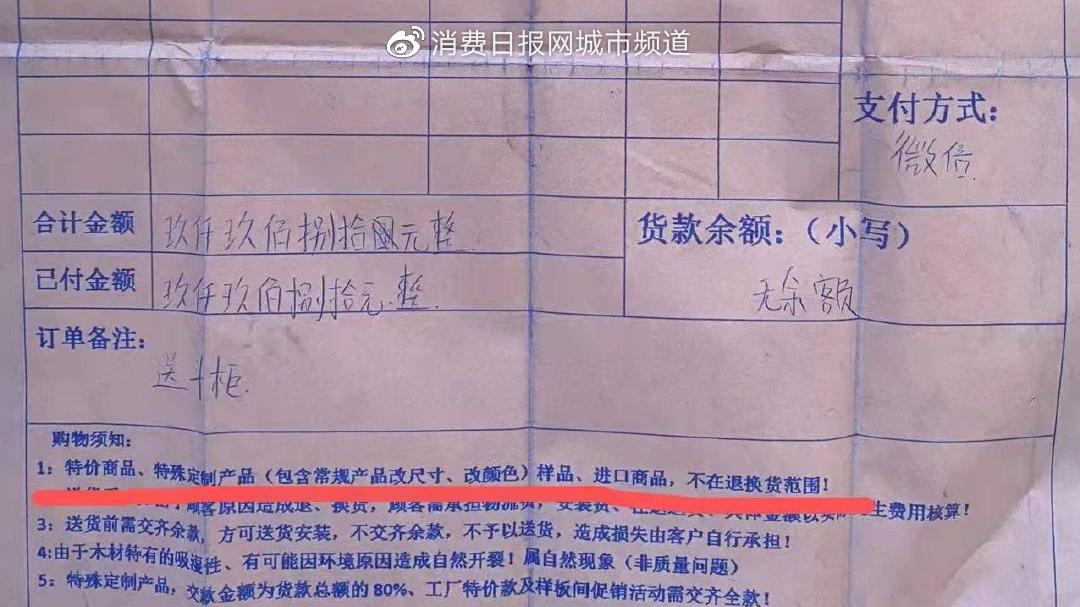 消费日报网城市频道
支付方式：
微信
合计金额 玖仟玖佰捌拾元整
货款余额：（小写）
已付金额 玖仟玖佰捌拾元整
无余额
订单备注：
送斗柜
购物须知：
1：特价商品、特殊定制产品（包含常规产品改尺寸、改颜色）样品、进口商品，不在退换货范围！
顾客原因造成退、换货，顾客需承担物流费，安装费、生费用核算！
3：送货前需交齐余款，方可送货安装，不交齐余款，不予以送货，造成损失由客户自行承担！
4:由于木材特有的吸湿性、有可能因环境原因造成自然开裂！属自然现象（非质量问题）
5：特殊定制产品，交款金额为货款总额的80%、工厂特价款及样板间促销活动需交齐全款！